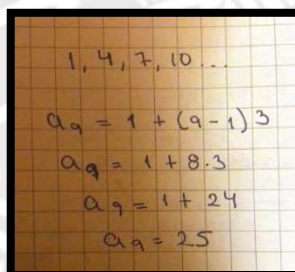 1, 4, 7, 10 ...
a₉ = 1 + (9-1) 3
a₉ = 1 + 8.3
a₉ = 1 + 24
a₉ = 25